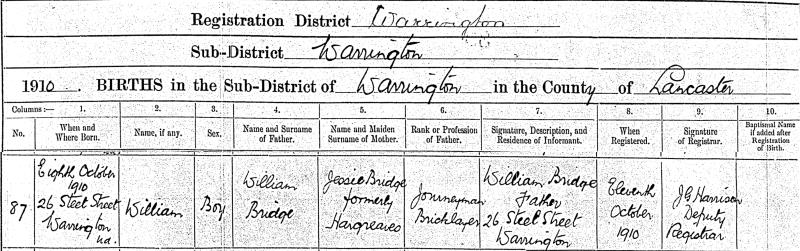 Registration District Warrington
Sub-District Warrington
1910. BIRTHS in the Sub-District of Warrington in the County of Lancaster
Columns :— 1. 2. 3. 4. 5. 6. 7. 8. 9. 10.
No. When and Where Born. Name, if any. Sex. Name and Surname of Father. Name and Maiden Surname of Mother. Rank or Profession of Father. Signature, Description, and Residence of Informant. When Registered. Signature of Registrar. Baptismal Name if added after Registration of Birth.
87
Eighth October
1910
26 Steel Street
Warrington
u.d.
William
Boy
William
Bridge
Jessie Bridge
formerly
Hargreaves
Journeyman
Bricklayer
William Bridge
Father
26 Steel Street
Warrington
Eleventh
October
1910
J G Harrison
Deputy
Registrar